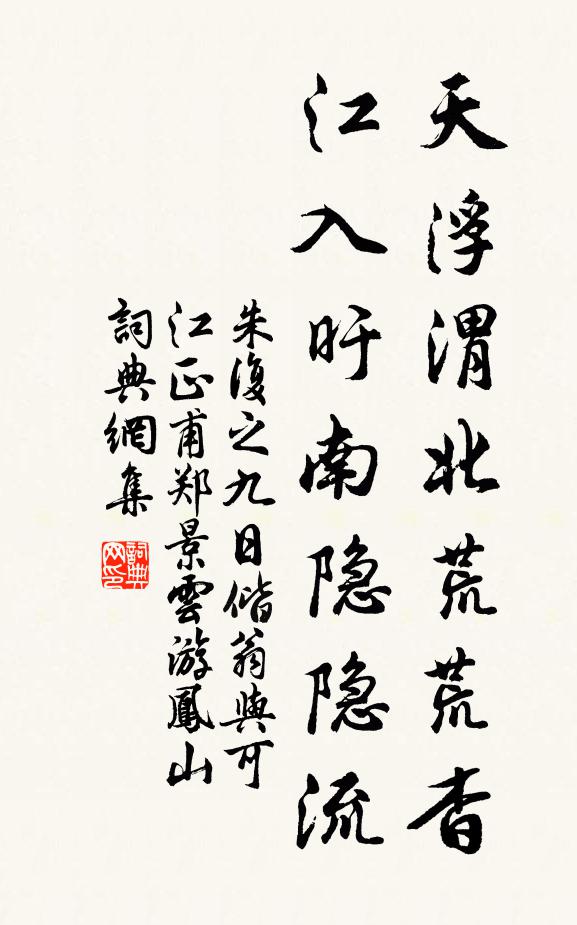 天浮渭北荒荒杳
江入盱南隐隐流
朱復之九日偕翁與可
江正甫郑景雲游鳳山
詞典網集
詞典
网印